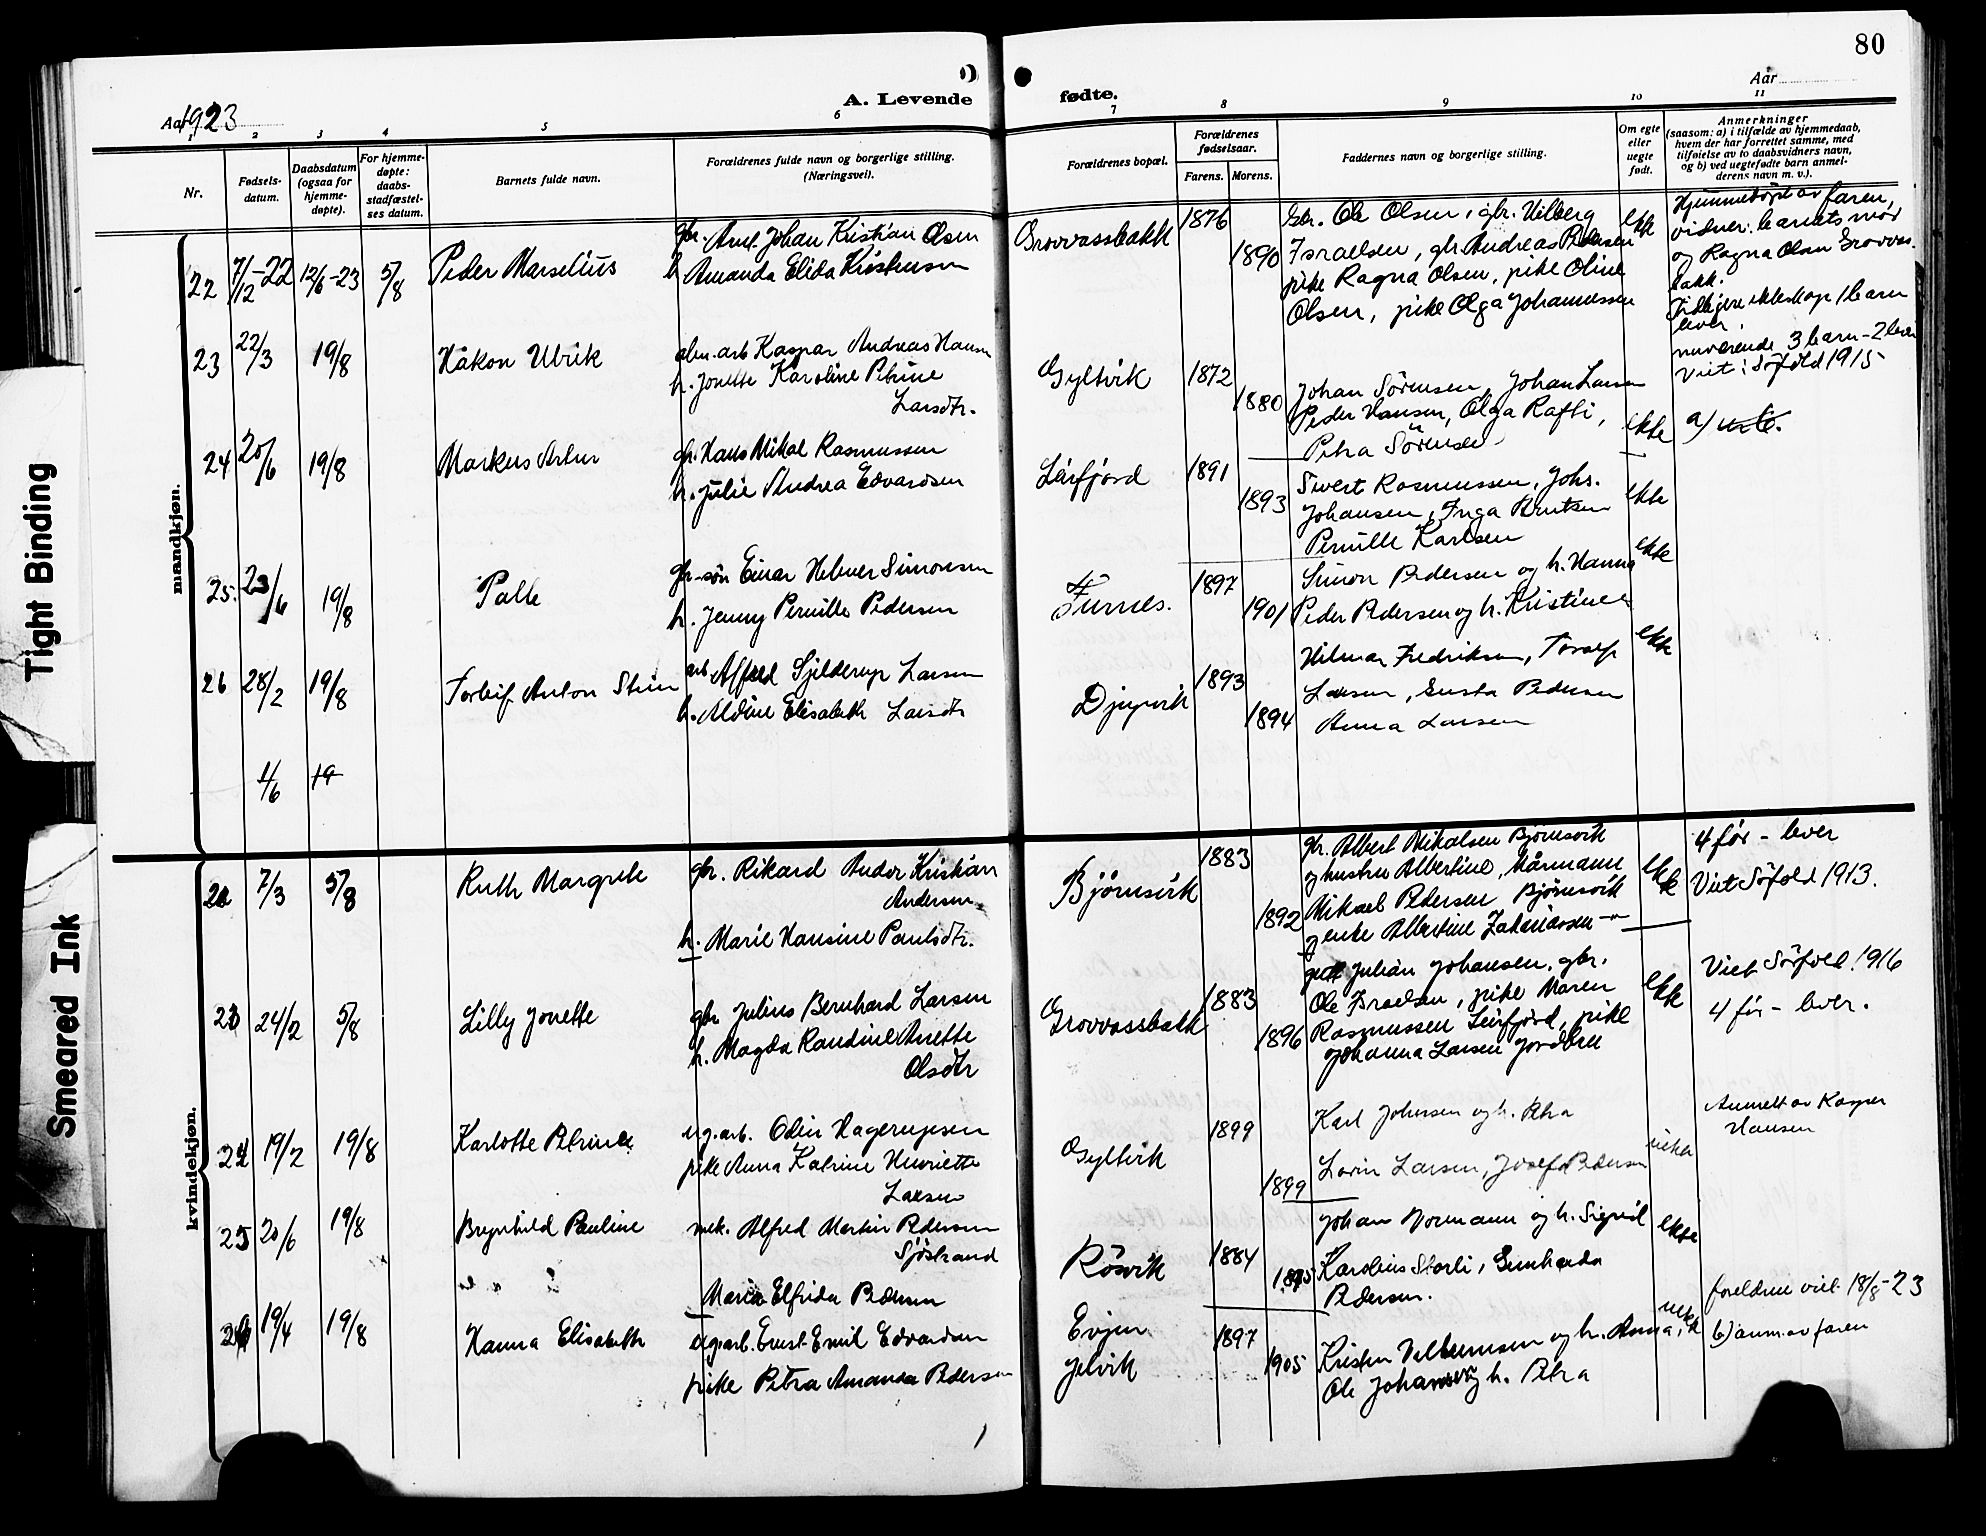 80
A. Levende
fødte.
Aar 1923
Aar
1 2 3 4 5 6 7 8 9 10 11
Nr.
Fødsels-
datum.
Daabsdatum
(ogsaa for
hjemme-
døpte).
For hjemme-
døpte:
daabs-
stadfæstel-
ses datum.
Barnets fulde navn.
Forældrenes fulde navn og borgerlige stilling.
(Næringsvei).
Forældrenes bopæl.
Forældrenes
fødselsaar.
Farens. Morens.
Faddernes navn og borgerlige stilling.
Om egte
eller
uegte
født.
Anmerkninger
(saasom: a) i tilfælde av hjemmedaab,
hvem der har forrettet samme, med
tilføielse av to daabsvidners navn,
og b) ved uegtefødte barn anmel-
derens navn m. v.).
mandkjøn.
22 7/12-22 12/6-23 5/8 Peder Marselius
gbr. Johan Kristian Olsen
h Amanda Elida Kristensen
Grovvassbakk 1876 1890
Gbr. Ole Olsen, gbr. Vilberg
Israelsen, gbr Andreas Pedersen
pike Ragna Olsen, pike Oline
Olsen, pike Olga Johannessen
ekte
Hjemmedøpt av faren,
vidner: barnets mor
og Ragna Olsen Grovvas-
bakk.
Tidligere ekteskap 1 barn
lever.
nuværende 3 barn - 2 lever
Viet: Sörfold 1915
23 22/3 19/8 Håkon Ulrik
Kaspar Andreas Hansen
h. Jonette Karoline Petrine
Larsdtr.
Gyltvik 1872 1880
Johan Sörensen, Johan Larsen
Peder Hansen, Olga Rafti,
Petra Sörensen
ekte
a)
24 20/6 19/8 Markus Artur
gbr. Hans Mikal Rasmussen
h. Julie Andrea Edvardsen
Leirfjord 1891 1893
Sivert Rasmussen, Johs.
Johansen, Inga Berntsen
Pernille Karlsen
ekte
25. 23/6 19/8 Palle
gbr-søn Einar Helmer Simonsen
h. Jenny Pernille Pedersen
Furnes. 1897 1901
Simon Pedersen og h. Hanna
Peder Pedersen og h. Kristine
ekte
26 28/2 19/8 Torleif Anton Stein
arb Alfred Gjelderup Larsen
h. Aldine Elisabeth Larsdtr
Djupvik 1893 1894
Hilmar Fredriksen, Toralf
Larsen, Gusta Pedersen
Anna Larsen
ekte
1/6 19
kvindekjøn.
7/3 5/8 Ruth Margrete
gbr. Rikard Ander Kristian
Andersen
h. Marie Hansine Paulsdtr.
Bjørnsvik 1883 1892
gbr. Albert Mikalsen Bjørnsvik
og hustru Albertine, Mårmann
Mikael Pedersen Bjørnsvik
og enke Albertine Zakariassen -"-
ekte
4 før - lever
Viet Søfold 1913.
23 24/2 5/8 Lilly Jonette
gbr Julius Bernhard Larsen
h. Magda Randine Anette
Olsdtr
Grovvassbakk 1883 1896
gutt Julian Johansen, gbr.
Ole Israelsen, pike Maren
Rasmussen Leirfjord, pike
Johanna Larsen Jordbru
ekte
Viet Sörfold 1916
4 før - lever.
24 19/2 19/8 Karlotte Petrine
ug.arb. Odin Hagerupsen
pike Anna Katrine Henriette
Larsen
Gyltvik 1899 1899
Karl Johnsen og h. Petra
Lorin Larsen, Josefa Pedersen
uekte
Anmelt av Kasper
Hansen
25 20/6 19/8 Brynhild Pauline
mek. Alfred Martin Pedersen
Sjöstrand
Maria Elfrida Pedersen
Rösvik 1884 1895
Johan Normann og h. Sigrid
Karolius Storli, Gunharda
Pedersen.
ekte
26 19/4 19/8 Hanna Elisabeth
ug.arb. Ernst Emil Edvardsen
pike Petra Amanda Pedersen
Evjen
Jelvik 1897 1905
og h. Anna,
Ole Johansen og h. Petra
uekte
foreldrene viet 18/8-23
b) anm. av faren
Tight Binding
Smeared Ink